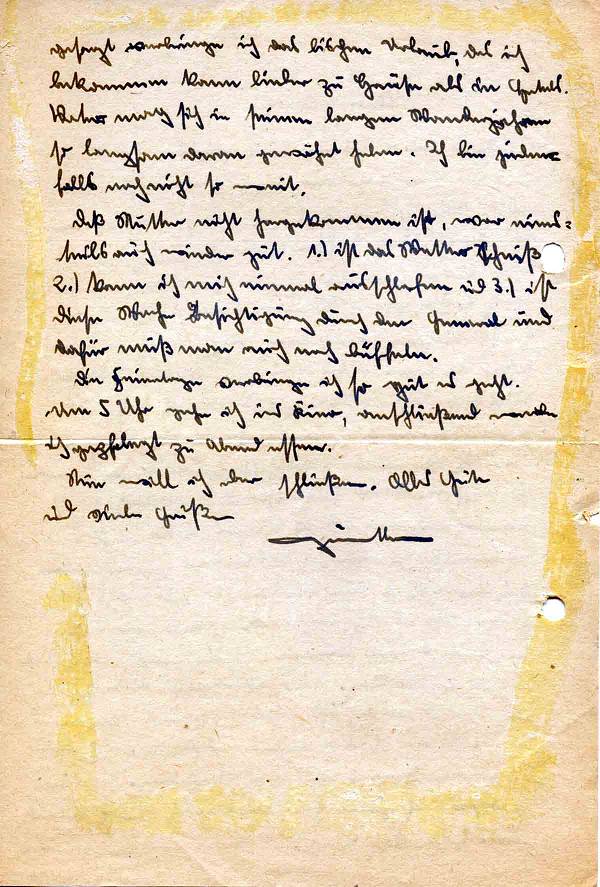 gesagt verbringe ich das bischen Urlaub, das ich
bekommen kann lieber zu Hause als in Hotels.
Vater mag sich in seinen langen Wanderjahren
so langsam daran gewöhnt haben. Ich bin jeden=
falls noch nicht so weit.
Daß Mutter nicht hergekommen ist, war eines=
teils auch wieder gut. 1.) ist das Wetter Scheiß
2.) kann ich mich einmal ausschlafen ud 3.) ist
diese Woche Besichtigung durch den General und
dafür muß man sich noch büffeln.
Die Feiertage verbringe ich so gut es geht.
Um 5 Uhr gehe ich ins Kino, anschließend werde
ich gepflegt zu Abend essen.
Nun will ich aber schließen. Alles Gute
ud viele Grüße
Günther